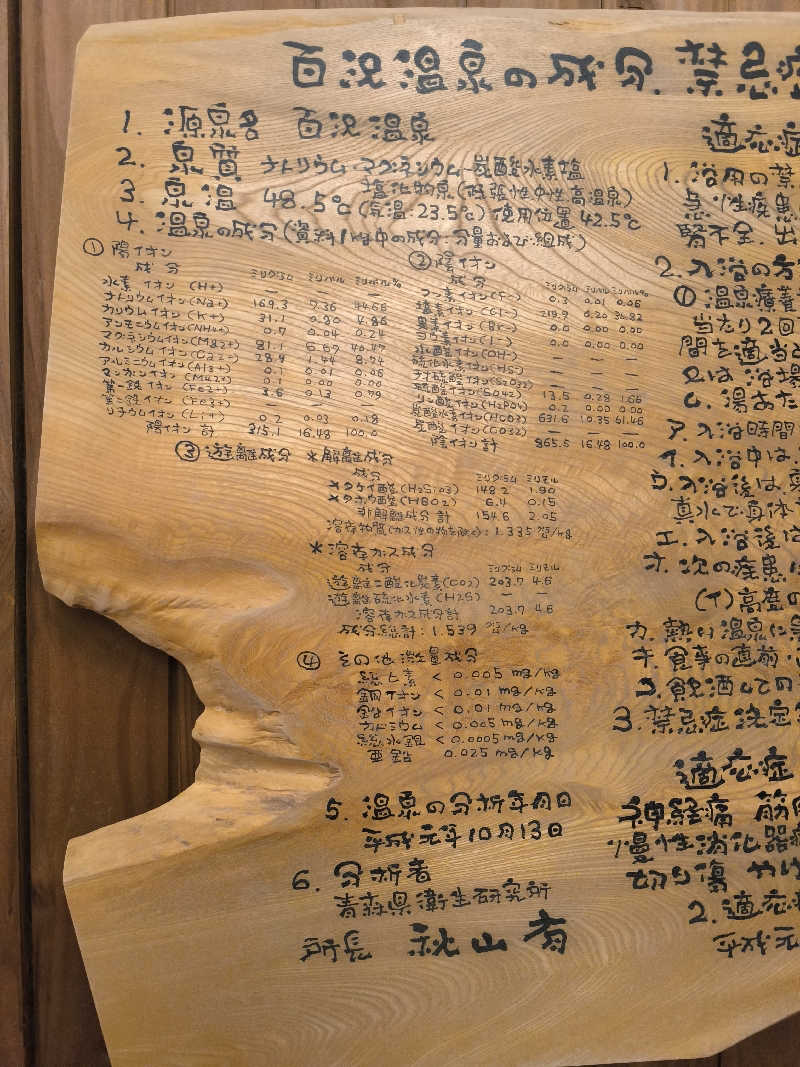 百沢温泉の成分.禁忌症
1. 源泉名 百沢温泉
2. 泉質 ナトリウム・マグネシウム-炭酸水素塩
塩化物泉(低張性中性高温泉)
3. 泉温 48.5℃(気温:23.5℃)使用位置42.5℃
4. 温泉の成分(資料1kg中の成分:分量および組成)
① 陽イオン
成分 ミリグラム ミリバル ミリバル%
水素イオン(H+) — — —
ナトリウムイオン(Na+) 169.3 7.36 44.66
カリウムイオン(K+) 31.1 0.80 4.86
アンモニウムイオン(NH4+) 0.7 0.04 0.24
マグネシウムイオン(Mg2+) 81.1 6.67 40.47
カルシウムイオン(Ca2+) 28.9 1.44 8.74
アルミニウムイオン(Al3+) 0.1 0.01 0.06
マンガンイオン(Mn2+) 0.1 0.00 0.00
第一鉄イオン(Fe2+) 3.6 0.13 0.79
第二鉄イオン(Fe3+) —
リチウムイオン(Li+) 0.2 0.03 0.18
陽イオン計 315.1 16.48 100.0
② 陰イオン
成分 ミリグラム ミリバル ミリバル%
フッ素イオン(F-) 0.3 0.01 0.06
塩素イオン(Cl-) 219.9 6.20 36.82
臭素イオン(Br-) 0.0 0.00 0.00
ヨウ素イオン(I-) 0.0 0.00 0.00
水酸イオン(OH-) — — —
硫化水素イオン(HS-) — — —
チオ硫酸イオン(S2O32-) — — —
硫酸イオン(SO42-) 13.5 0.28 1.66
リン酸イオン(H2PO4) 0.2 0.00 0.00
炭酸水素イオン(HCO3) 631.6 10.35 61.46
炭酸イオン(CO32) — — —
陰イオン計 865.5 16.48 100.0
③ 遊離成分 *解離成分
成分 ミリグラム ミリモル
メタケイ酸(H2SiO3) 148.2 1.90
メタホウ酸(HBO2) 6.4 0.15
非解離成分計 154.6 2.05
溶存物質(ガス性の物を除く):1.335 g/kg
*溶存ガス成分
成分 ミリグラム ミリモル
遊離二酸化炭素(CO2) 203.7 4.6
遊離硫化水素(H2S) — —
溶存ガス成分計 203.7 4.6
成分総計:1.539 g/kg
④ その他微量成分
総ヒ素 < 0.005 mg/kg
銅イオン < 0.01 mg/kg
鉛イオン < 0.01 mg/kg
カドミウム < 0.005 mg/kg
総水銀 < 0.0005 mg/kg
亜鉛 0.025 mg/kg
5. 温泉の分析年月日
平成元年10月13日
6. 分析者
青森県衛生研究所
所長 秋山有
適応症
1. 浴用の禁
急性疾患
腎不全.出
2.入浴の方
① 温泉療養
当たり2回
間を適当と
又は浴場
し.湯あた
ア.入浴時間
イ.入浴中は
ウ.入浴後は真
真水で身体
エ.入浴後は
オ.次の疾患
(イ)高度の
カ.熱い温泉に
キ.食事の直前
コ.飲酒しての
3.禁忌症決定
適応症
神経痛 筋肉
慢性消化器病
切り傷 やけ
2.適応
平成元